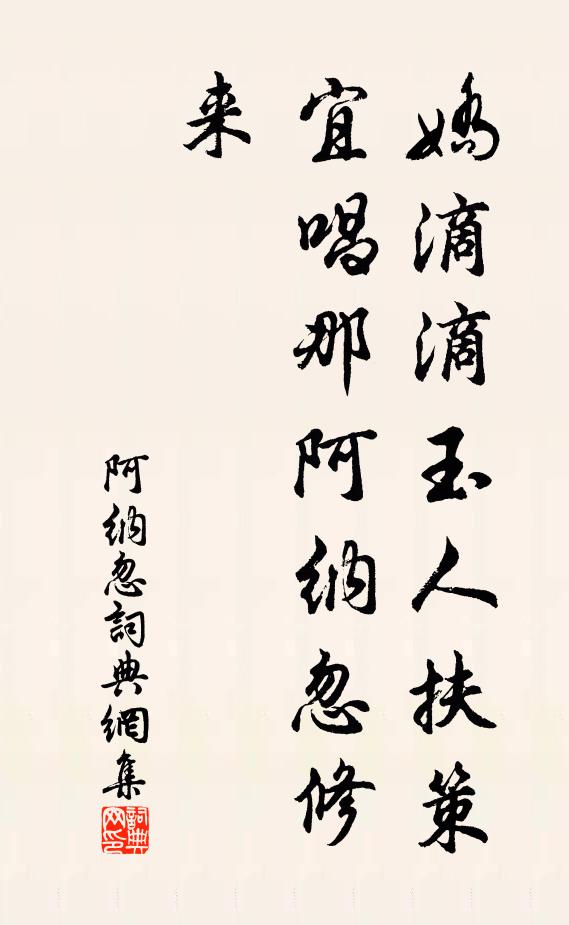 嬌滴滴玉人扶策
宜唱那阿納忽修
来
阿納忽詞典網集
詞典网印